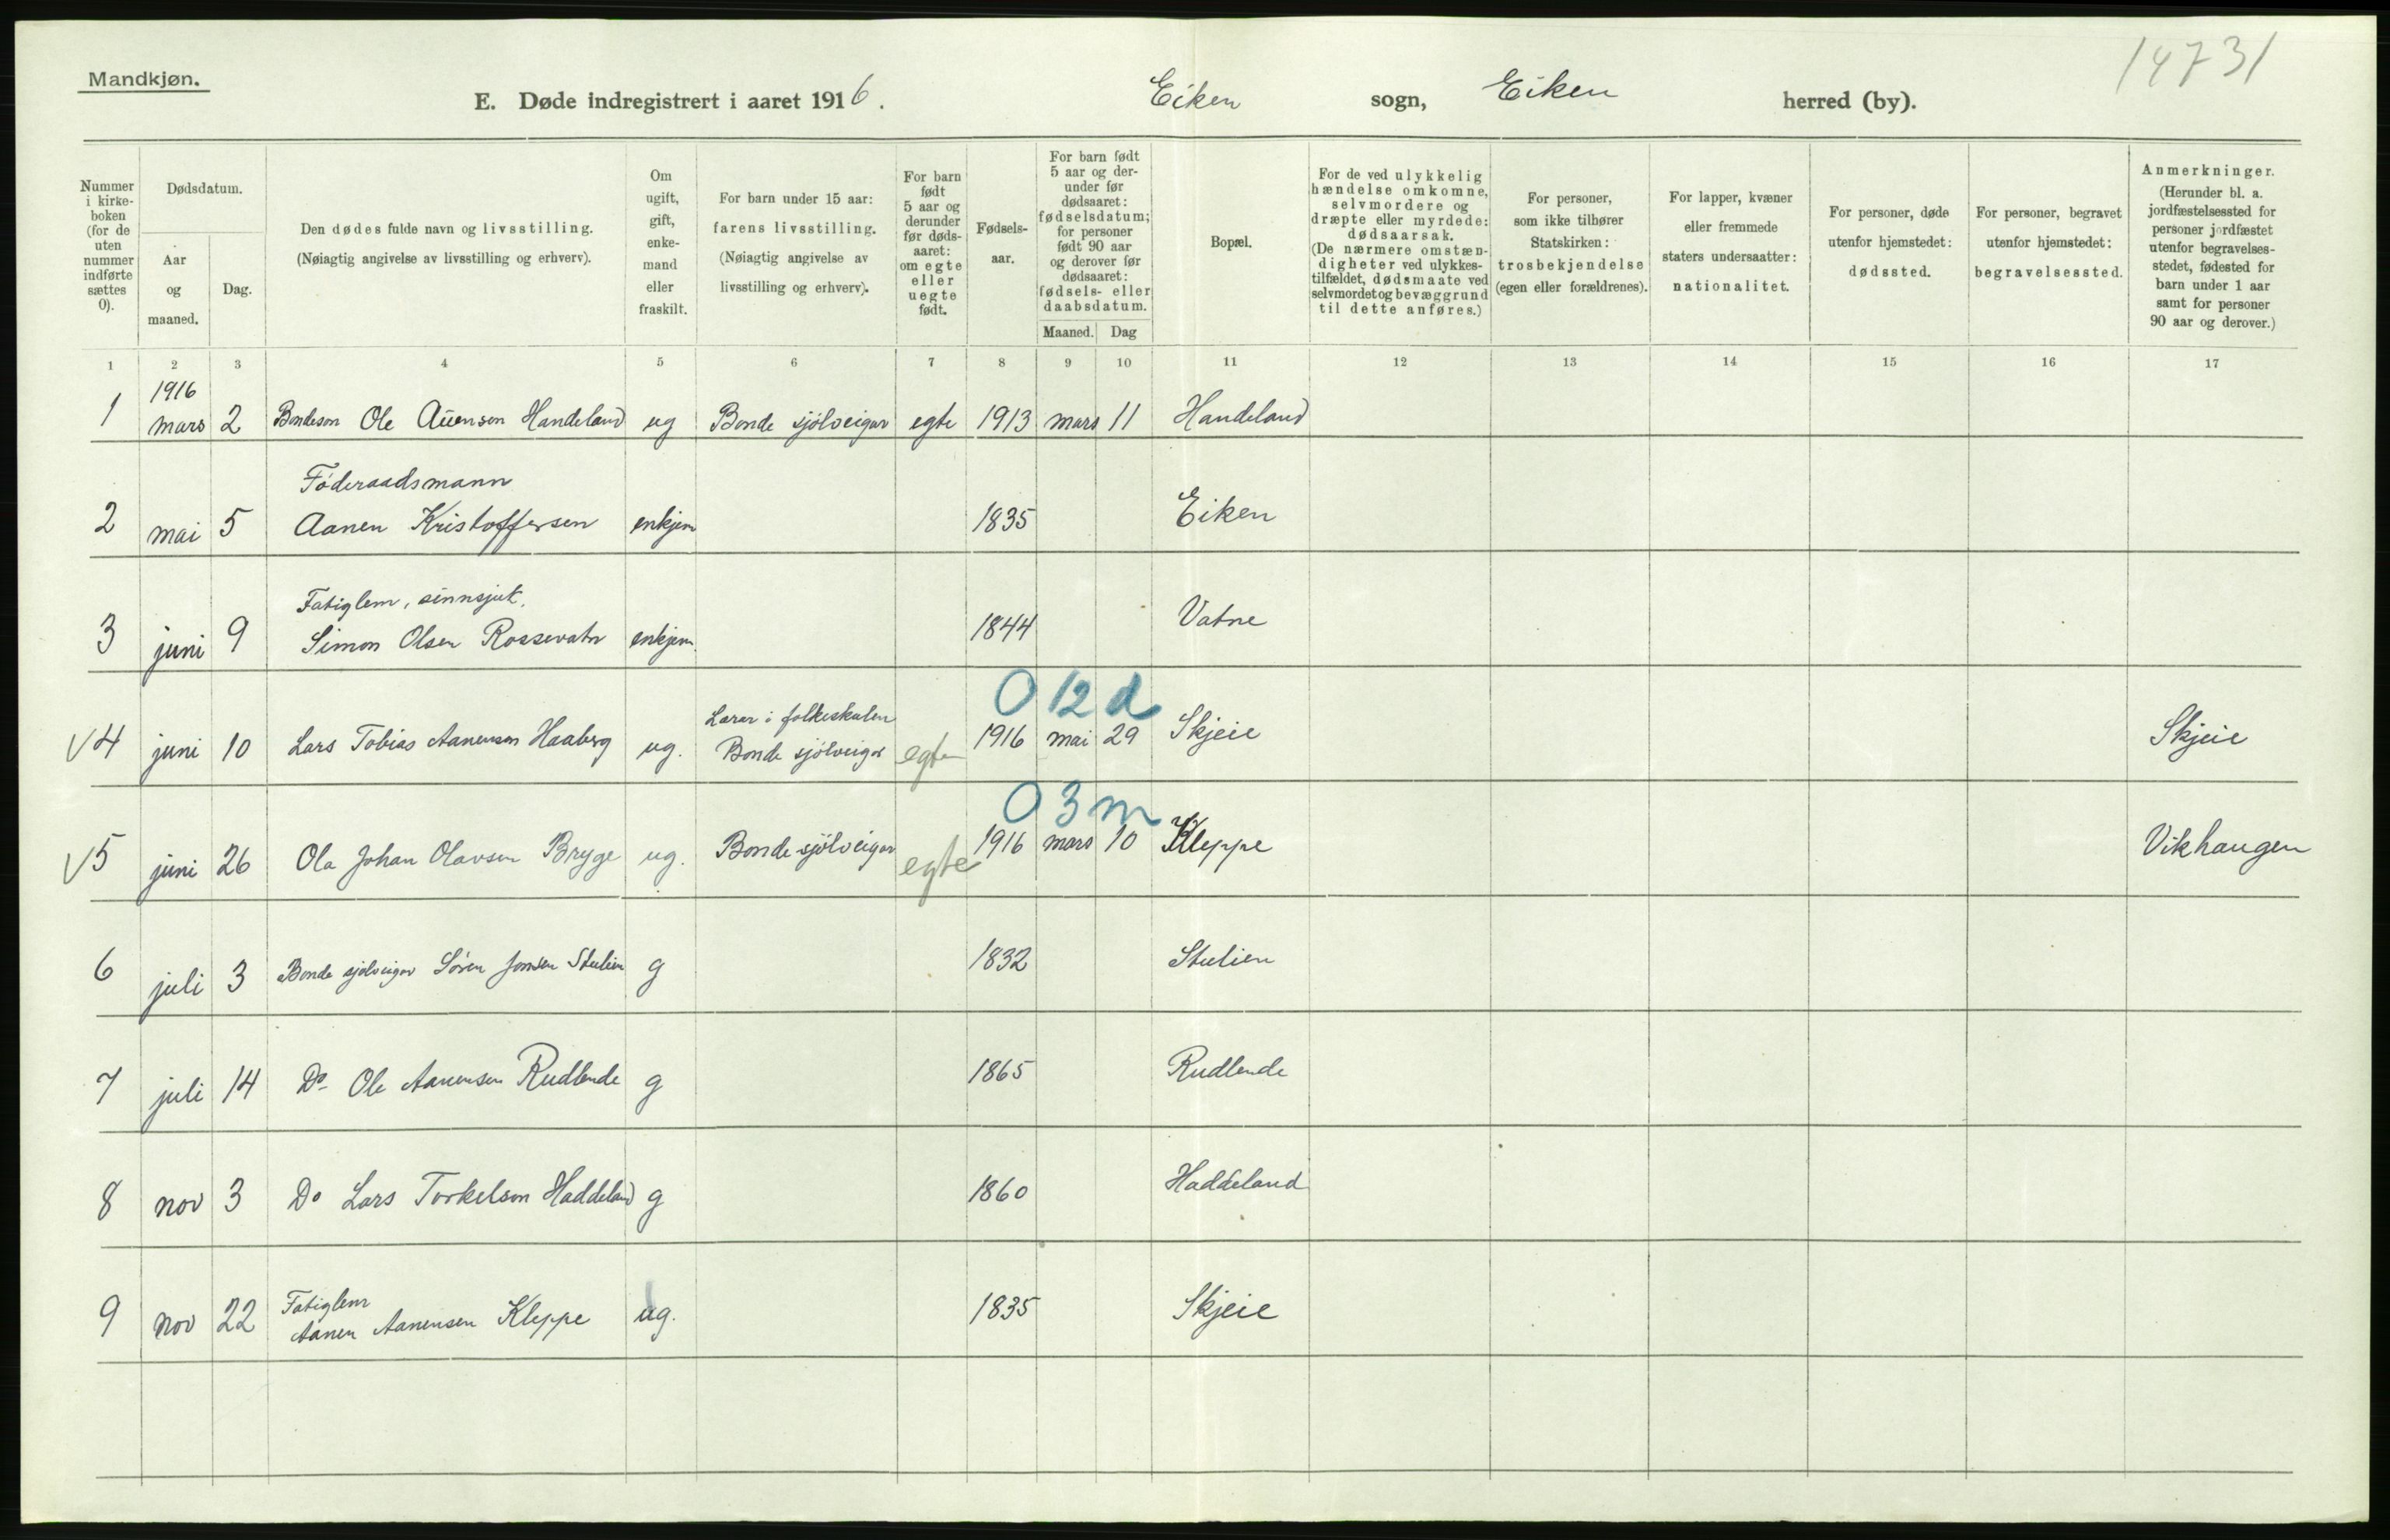 Mandkjøn.
14731
E. Døde indregistrert i aaret 1916. Eiken sogn, Eiken herred (by).
Nummer i kirke-boken (for de uten nummer indførte sættes 0).
Dødsdatum.
Aar og maaned.
Dag.
Den dødes fulde navn og livsstilling.
(Nøiagtig angivelse av livsstilling og erhverv).
Om ugift, gift, enke-mand eller fraskilt.
For barn under 15 aar: farens livsstilling.
(Nøiagtig angivelse av livsstilling og erhverv).
For barn født 5 aar og derunder før døds-aaret: om egte eller uegte født.
Fødsels-aar.
For barn født 5 aar og der-under før dødsaaret: fødselsdatum; for personer født 90 aar og derover før dødsaaret: fødsels- eller daabsdatum.
Maaned. Dag
Bopæl.
For de ved ulykkelig hændelse omkomne, selvmordere og dræpte eller myrdede: dødsaarsak.
(De nærmere omstæn-digheter ved ulykkes-tilfældet, dødsmaate ved selvmordet og bevæggrund til dette anføres.)
For personer, som ikke tilhører Statskirken: trosbekjendelse (egen eller forældrenes).
For lapper, kvæner eller fremmede staters undersaatter: nationalitet.
For personer, døde utenfor hjemstedet: dødssted.
For personer, begravet utenfor hjemstedet: begravelsessted.
Anmerkninger.
(Herunder bl. a. jordfæstelsessted for personer jordfæstet utenfor begravelses-stedet, fødested for barn under 1 aar samt for personer 90 aar og derover.)
1 2 3 4 5 6 7 8 9 10 11 12 13 14 15 16 17
1916
1 mars 2 Bondeson Ole Aùenson Handeland ug Bonde sjölveigar egte 1913 mars 11 Handeland
Föderaadsmann
2 mai 5 Aanen Kristoffersen enkjem 1835 Eiken
Fatiglem, sinnsjuk.
3 juni 9 Simon Olsen Rossevatn enkjem. 1844 Vatne
0 12 d
Lærar i folkeskulen
√ 4 juni 10 Lars Tobias Aanenson Haaberg ug. Bonde sjölveigar egte 1916 mai 29 Skjeie Skjeie
0 3 m
√ 5 juni 26 Ola Johan Olavsen Bryge ug. Bonde sjölveigar egte 1916 mars 10 Kleppe Vikhaugen
6 juli 3 Bonde sjølveigar Sören Jonsen Stulien g 1832 Stulien
7 juli 14 Do Ole Aanensen Rudlende g 1865 Rudlende
8 nov 3 Do Lars Torkelson Haddeland g 1860 Haddeland
Fatiglem
9 nov 22 Aanen Aanensen Kleppe ug. 1835 Skjeie